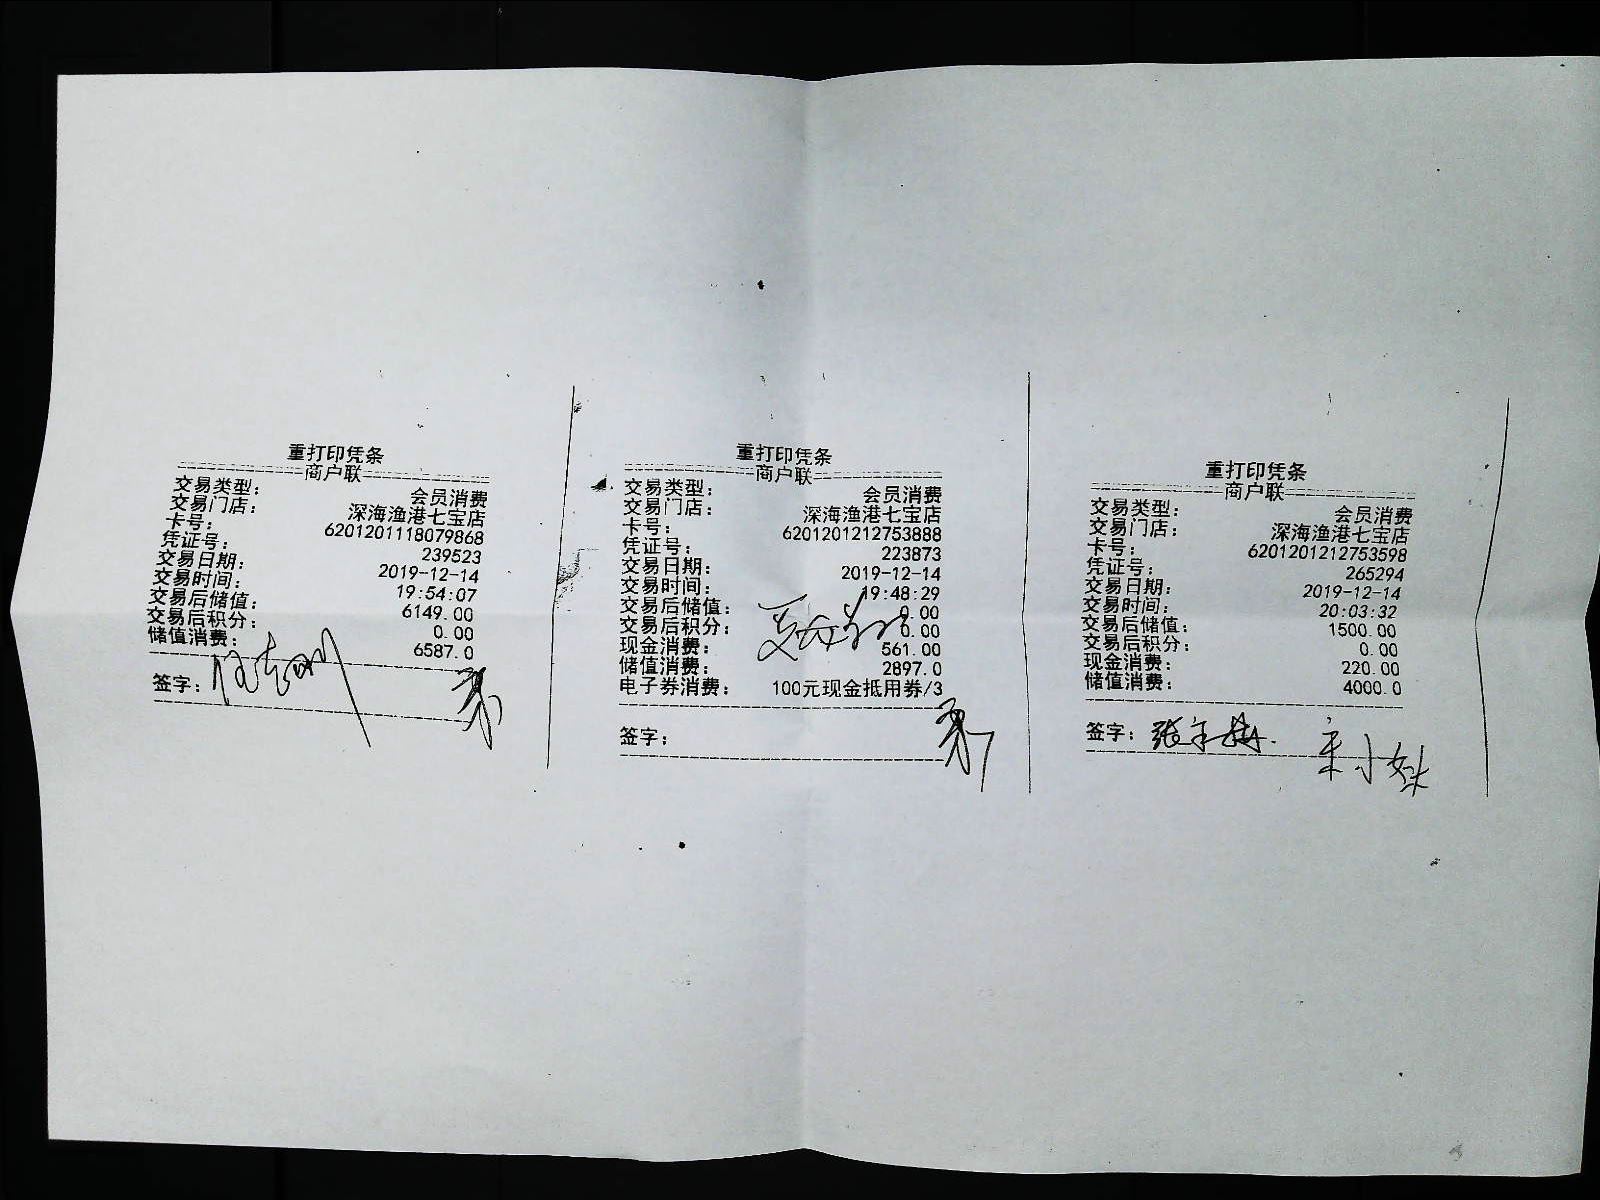 重打印凭条
商户联
交易类型： 会员消费
交易门店： 深海渔港七宝店
卡号： 6201201118079868
凭证号： 239523
交易日期： 2019-12-14
交易时间： 19:54:07
交易后储值： 6149.00
交易后积分： 0.00
储值消费： 6587.0
签字：
重打印凭条
商户联
交易类型： 会员消费
交易门店： 深海渔港七宝店
卡号： 6201201212753888
凭证号： 223873
交易日期： 2019-12-14
交易时间： 19:48:29
交易后储值： 0.00
交易后积分： 0.00
现金消费： 561.00
储值消费： 2897.0
电子券消费： 100元现金抵用券/3
签字：
重打印凭条
商户联
交易类型： 会员消费
交易门店： 深海渔港七宝店
卡号： 6201201212753598
凭证号： 265294
交易日期： 2019-12-14
交易时间： 20:03:32
交易后储值： 1500.00
交易后积分： 0.00
现金消费： 220.00
储值消费： 4000.0
签字：